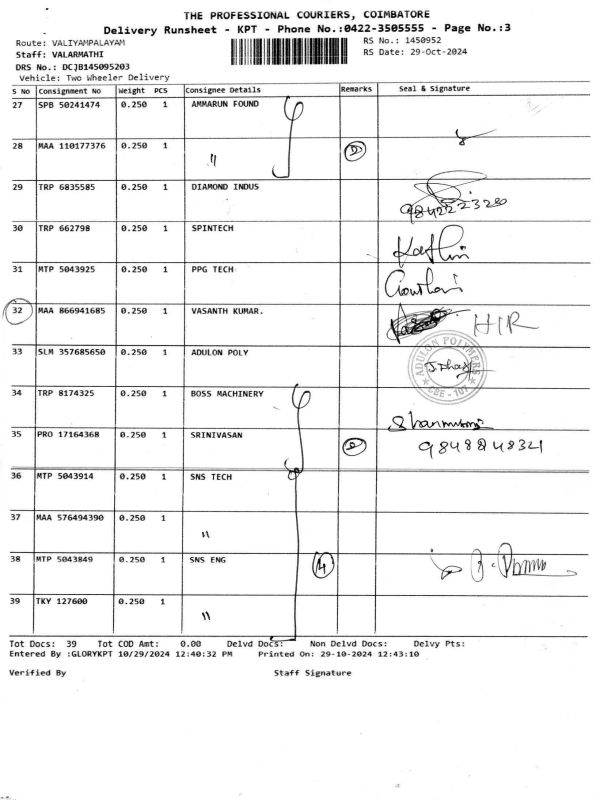 THE PROFESSIONAL COURIERS, COIMBATORE
Delivery Runsheet - KPT - Phone No.:0422-3505555 - Page No.:3
Route: VALIYAMPALAYAM
RS No.: 1450952
Staff: VALARMATHI
RS Date: 29-Oct-2024
DRS No.: DCJB145095203
Vehicle: Two Wheeler Delivery
S No Consignment No Weight PCS Consignee Details Remarks Seal & Signature
27 SPB 50241474 0.250 1 AMMARUN FOUND
28 MAA 110177376 0.250 1 " 2
29 TRP 6835585 0.250 1 DIAMOND INDUS
30 TRP 662798 0.250 1 SPINTECH
31 MTP 5043925 0.250 1 PPG TECH
32 MAA 866941685 0.250 1 VASANTH KUMAR. HIR
33 SLM 357685650 0.250 1 ADULON POLY
ADULON POLYMERS
CBE - 107
34 TRP 8174325 0.250 1 BOSS MACHINERY
35 PRO 17164368 0.250 1 SRINIVASAN 2 9848848321
36 MTP 5043914 0.250 1 SNS TECH
37 MAA 576494390 0.250 1 "
38 MTP 5043849 0.250 1 SNS ENG 4
39 TKY 127600 0.250 1 "
Tot Docs: 39 Tot COD Amt: 0.00 Delvd Docs: Non Delvd Docs: Delvy Pts:
Entered By :GLORYKPT 10/29/2024 12:40:32 PM Printed On: 29-10-2024 12:43:10
Verified By Staff Signature